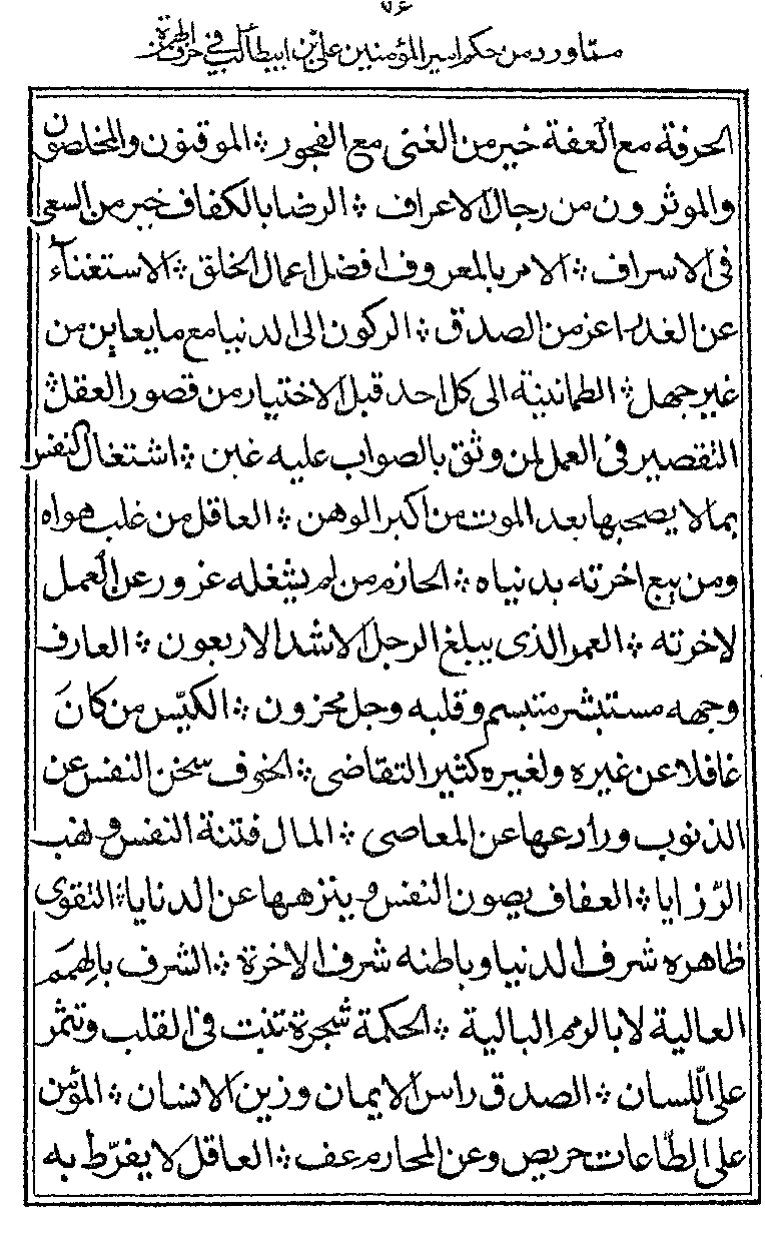 ٧٤
مما ورد من حكم امير المؤمنين على بن ابيطالب في حرف الهمزة
الحرفة مع العفة خير من الغنى مع الفجور ❊ الموقنون والمخلصون
والموثرون من رجال الاعراف ❊ الرضا بالكفاف خير من السعى
فى الاسراف ❊ الامر بالمعروف افضل اعمال الخلق ❊ الاستغناء
عن العذر اعز من الصدق ❊ الركون الى الدنيا مع ما يعاين من
غير جهل ❊ الطمانينة الى كل احد قبل الاختيار من قصور العقل ❊
التقصير فى العمل لمن وثق بالصواب عليه غبن ❊ اشتغال النفس
بما لا يصحبها بعد الموت من اكبر الوهن ❊ العاقل من غلب هواه
ومن بيع اخرته بدنياه ❊ الحازم من لم يشغله غرور عن العمل
لاخرته ❊ العمر الذى يبلغ الرجل الاشد الاربعون ❊ العارف
وجهه مستبشر متبسم وقلبه وجل محزون ❊ الكيّس من كانَ
غافلا عن غيره ولغيره كثير التقاضى ❊ الخوف سخن النفس عن
الذنوب ورادعها عن المعاصى ❊ المال فتنة النفس و نهب
الرّزايا ❊ العفاف يصون النفس و ينزهها عن الدنايا ❊ التقوى
ظاهره شرف الدنيا وباطنه شرف الاخرة ❊ الشرف بالهمم
العالية لا بالرمم البالية ❊ الحكمة شجرة تنبت فى القلب وتثمر
على اللّسان ❊ الصدق راس الايمان وزين الانسان ❊ المؤمن
على الطّاعات حريص وعن المحارم عف ❊ العاقل لا يفرّط به